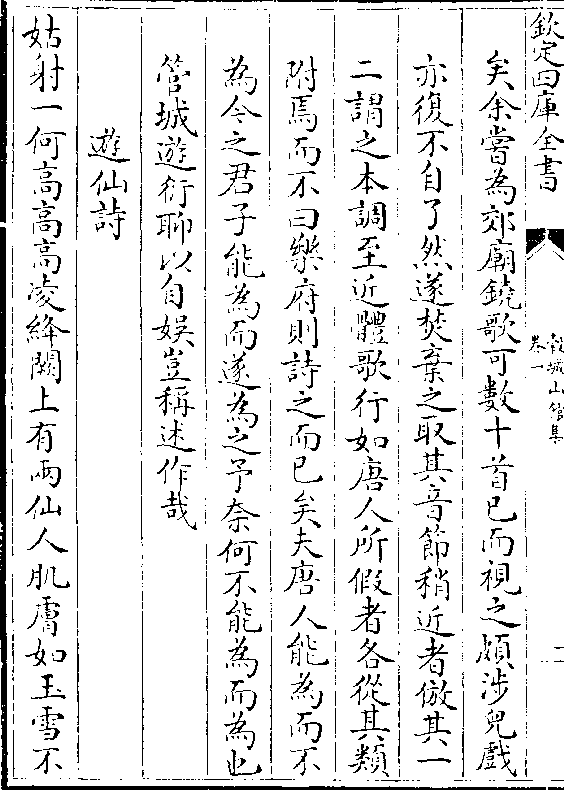 欽定四庫全書
穀城山館集
卷一
二
矣余嘗為郊廟鐃歌可數十首已而視之頗涉兒戲
亦復不自了然遂焚棄之取其音節稍近者倣其一
二謂之本調至近體歌行如唐人所假者各從其類
附焉而不曰樂府則詩之而已矣夫唐人能為而不
為今之君子能為而遂為之予奈何不能為而為也
管城遊衍聊以自娛豈稱述作哉
遊仙詩
姑射一何高高高凌絳闕上有兩仙人肌膚如玉雪不